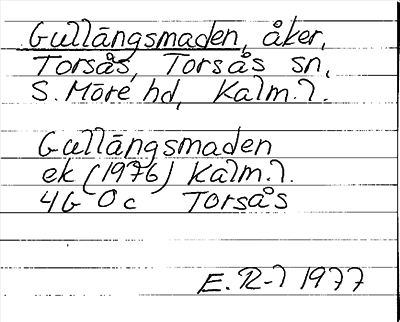 Gullängsmaden, åker,
Torsås, Torsås sn,
S. Möre hd, Kalm. l.
Gullängsmaden
ek (1976) Kalm. l.
4G 0c Torsås
E. R-l 1977